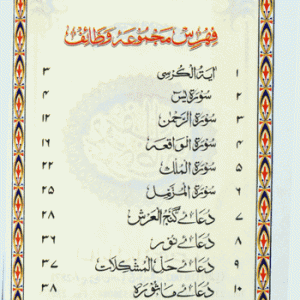 فہرس مجموعہ وظائف
۱ آیۃ الکرسی ۳
۲ سورۃ یٰس ۴
۳ سورۃ الرحمٰن ۱۲
۴ سورۃ الواقعہ ۱۶
۵ سورۃ الملک ۲۲
۶ سورۃ المزمل ۲۵
۷ دعائے گنج العرش ۲۸
۸ دعائے نور ۳۶
۹ دعائے حل المشکلات ۳۷
۱۰ دعائے ماثورہ ۳۸